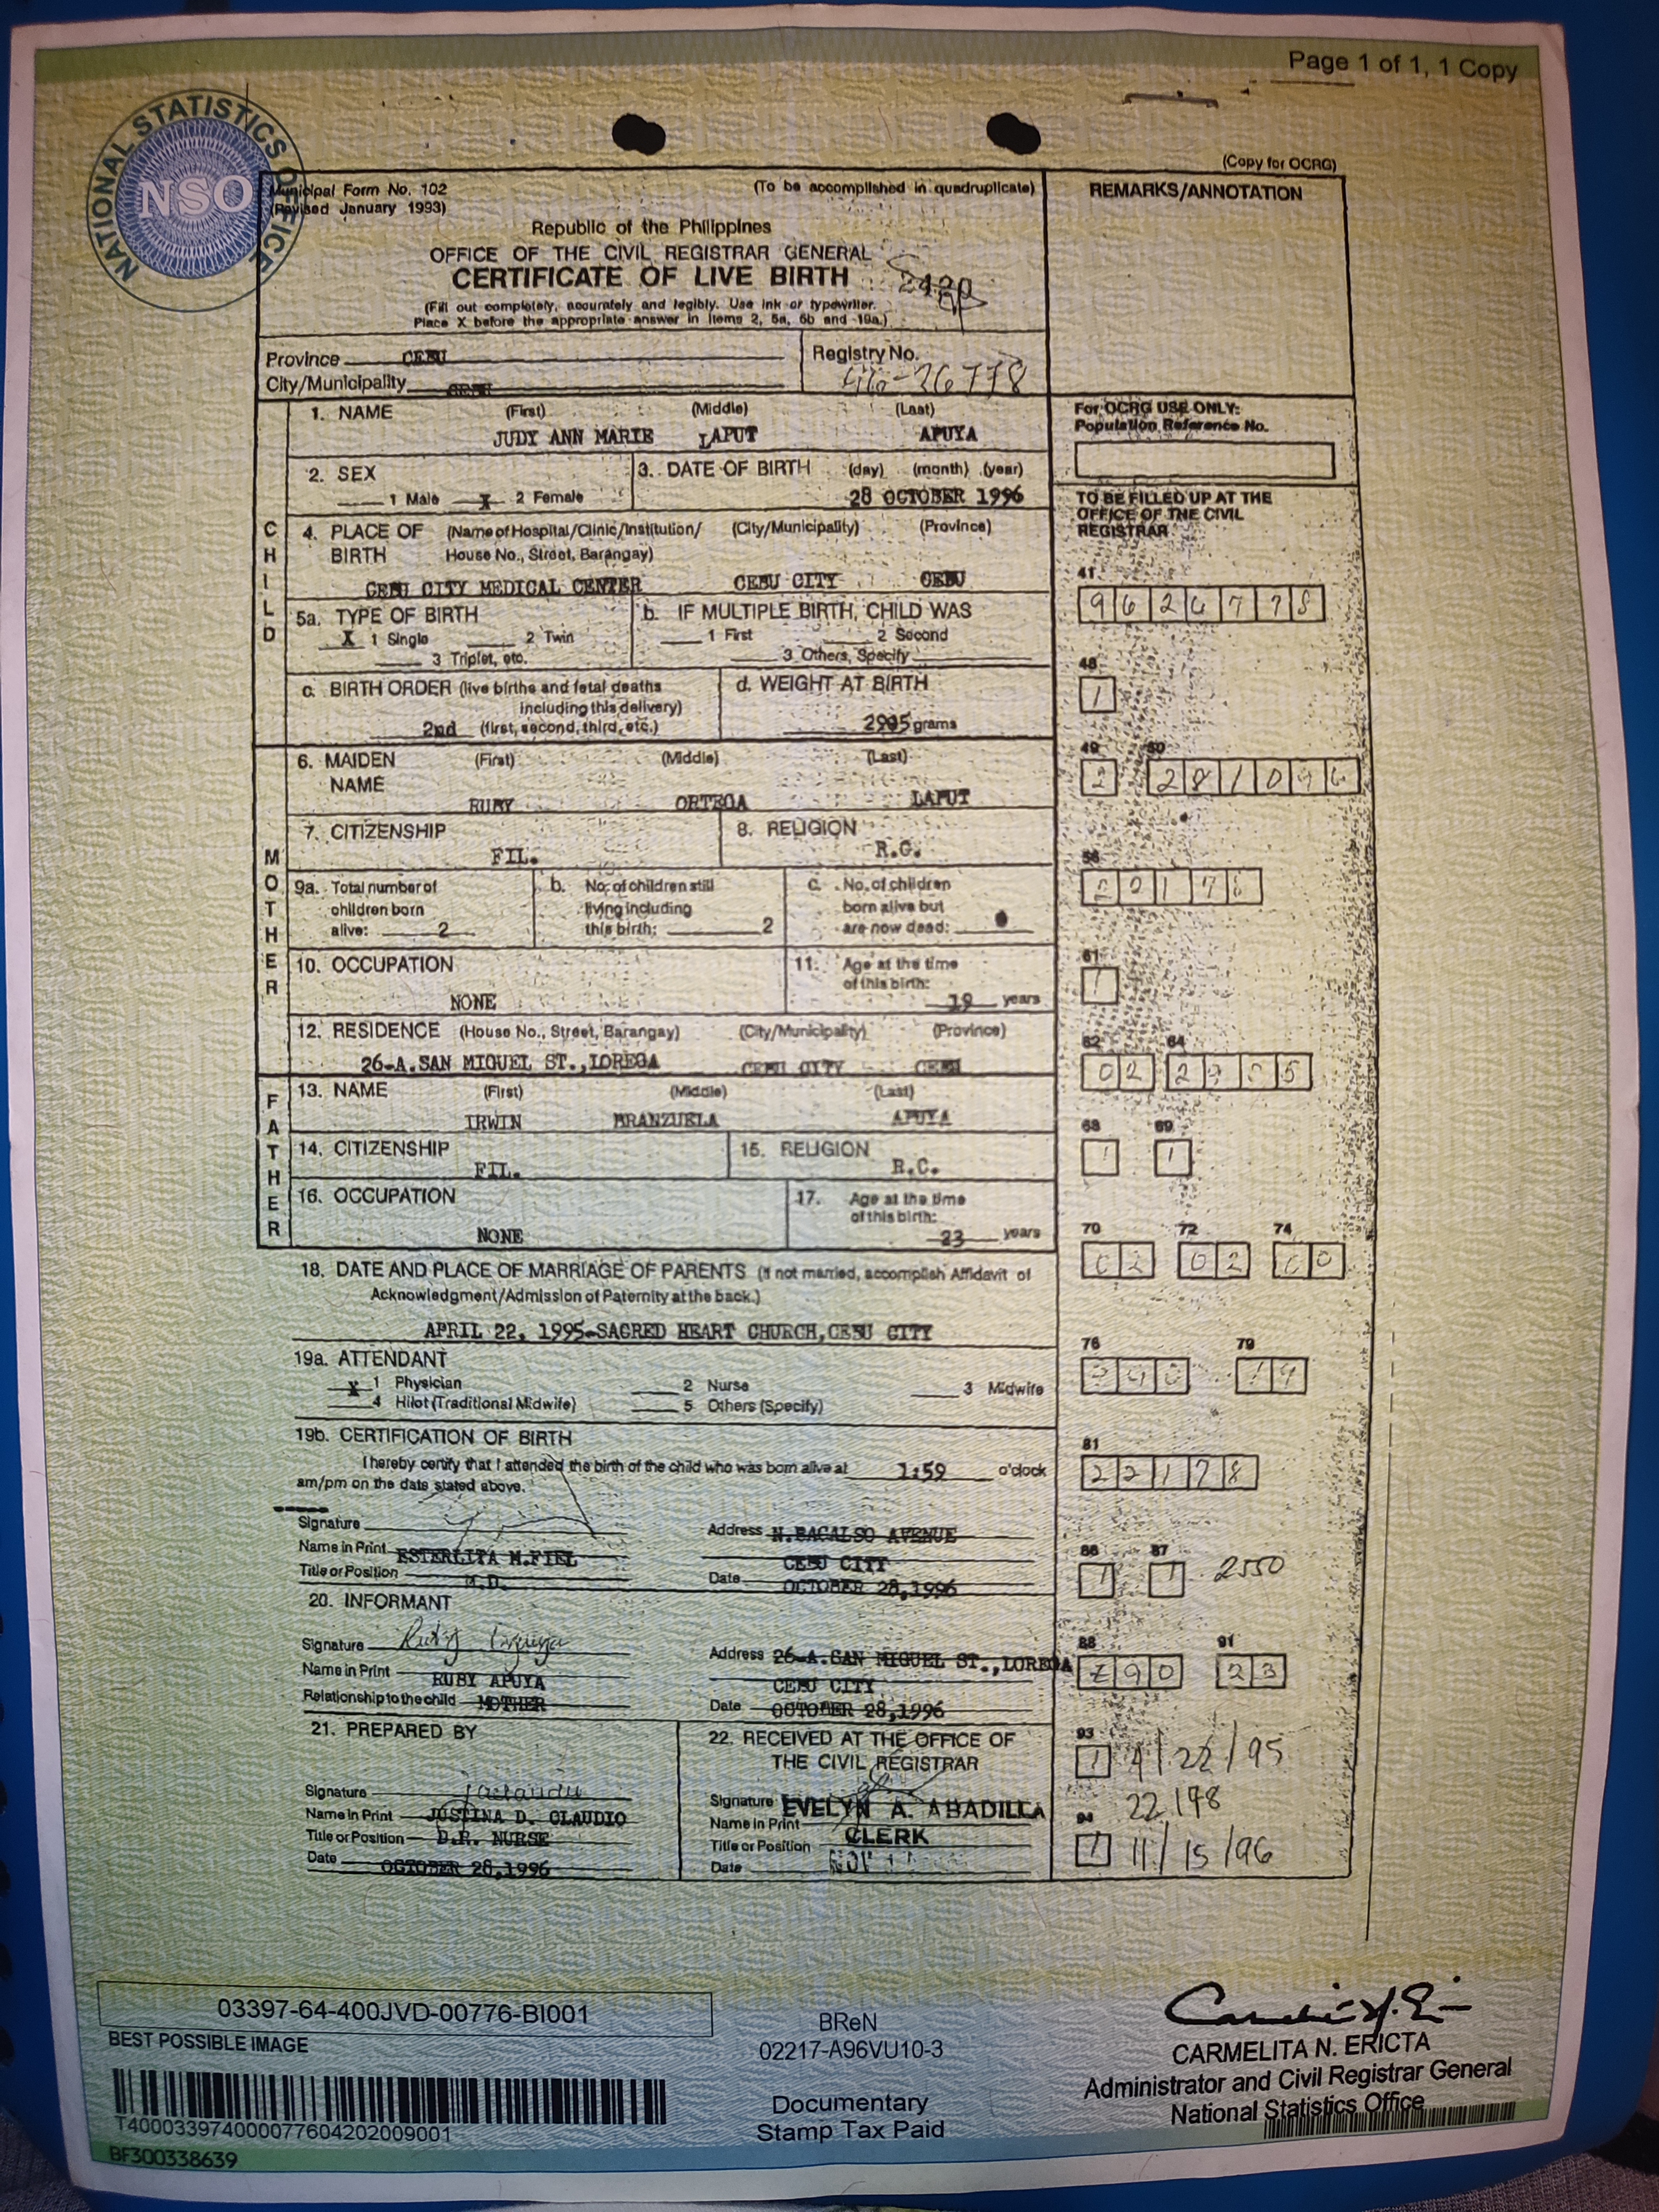 Page 1 of 1, 1 Copy
NATIONAL STATISTICS OFFICE
NSO
(Copy for OCRG)
Municipal Form No. 102
(Revised January 1993)
(To be accomplished in quadruplicate)
REMARKS/ANNOTATION
Republic of the Philippines
OFFICE OF THE CIVIL REGISTRAR GENERAL
CERTIFICATE OF LIVE BIRTH
(Fill out completely, accurately and legibly. Use ink or typewriter.
Place X before the appropriate answer in items 2, 5a, 5b and 19a.)
Province CEBU
City/Municipality
Registry No.
1. NAME (First) (Middle) (Last)
JUDY ANN MARIE LAPUT APUYA
For OCRG USE ONLY:
Population Reference No.
2. SEX
1 Male X 2 Female
3. DATE OF BIRTH (day) (month) (year)
28 OCTOBER 1996
TO BE FILLED UP AT THE
OFFICE OF THE CIVIL
REGISTRAR
CHILD
4. PLACE OF BIRTH (Name of Hospital/Clinic/Institution/ House No., Street, Barangay) (City/Municipality) (Province)
CEBU CITY MEDICAL CENTER CEBU CITY CEBU
41
5a. TYPE OF BIRTH
X 1 Single 2 Twin
3 Triplet, etc.
b. IF MULTIPLE BIRTH, CHILD WAS
1 First 2 Second
3 Others, Specify
48
1
c. BIRTH ORDER (live births and fetal deaths
including this delivery)
2nd (first, second, third, etc.)
d. WEIGHT AT BIRTH
grams
49 50
2 281096
MOTHER
6. MAIDEN NAME (First) (Middle) (Last)
RUBY ORTEGA LAPUT
7. CITIZENSHIP
FIL.
8. RELIGION
R.C.
56
9a. Total number of
children born
alive: 2
b. No. of children still
living including
this birth: 2
c. No. of children
born alive but
are now dead:
61
1
10. OCCUPATION
NONE
11. Age at the time
of this birth:
19 years
12. RESIDENCE (House No., Street, Barangay) (City/Municipality) (Province)
26-A.SAN MIGUEL ST.,LOREGA CEBU CITY CEBU
62 64
02
FATHER
13. NAME (First) (Middle) (Last)
IRWIN BRANZUELA APUYA
68 69
1 1
14. CITIZENSHIP
FIL.
15. RELIGION
R.C.
16. OCCUPATION
NONE
17. Age at the time
of this birth:
23 years
70 72 74
02 02 00
18. DATE AND PLACE OF MARRIAGE OF PARENTS (if not married, accomplish Affidavit of
Acknowledgment/Admission of Paternity at the back.)
APRIL 22, 1995-SACRED HEART CHURCH,CEBU CITY
76 79
19
19a. ATTENDANT
X 1 Physician 2 Nurse 3 Midwife
4 Hilot (Traditional Midwife) 5 Others (Specify)
19b. CERTIFICATION OF BIRTH
I hereby certify that I attended the birth of the child who was born alive at 1:59 o'clock
am/pm on the date stated above.
81
22178
Signature
Name in Print ESTERLITA M.FIEL
Title or Position M.D.
Address N.BACALSO AVENUE
CEBU CITY
Date OCTOBER 28,1996
86 87
1 1 2550
20. INFORMANT
Signature Ruby Apuya
Name in Print RUBY APUYA
Relationship to the child MOTHER
Address 26-A.SAN MIGUEL ST.,LOREGA
CEBU CITY
Date OCTOBER 28,1996
88 91
990 23
21. PREPARED BY
Signature
Name in Print JUSTINA D. CLAUDIO
Title or Position D.R. NURSE
Date OCTOBER 28,1996
22. RECEIVED AT THE OFFICE OF
THE CIVIL REGISTRAR
Signature EVELYN A. ABADILLA
Name in Print
Title or Position CLERK
Date NOV
93
1 4/22/95
22178
94
1 11/15/96
03397-64-400JVD-00776-BI001
BEST POSSIBLE IMAGE
T400033974000077604202009001
BF300338639
BReN
02217-A96VU10-3
Documentary
Stamp Tax Paid
CARMELITA N. ERICTA
Administrator and Civil Registrar General
National Statistics Office